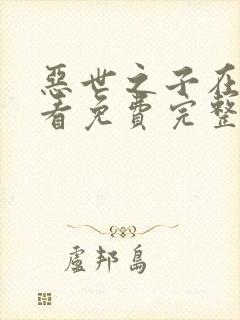 惡世之子在
看免費完整
盧邦島